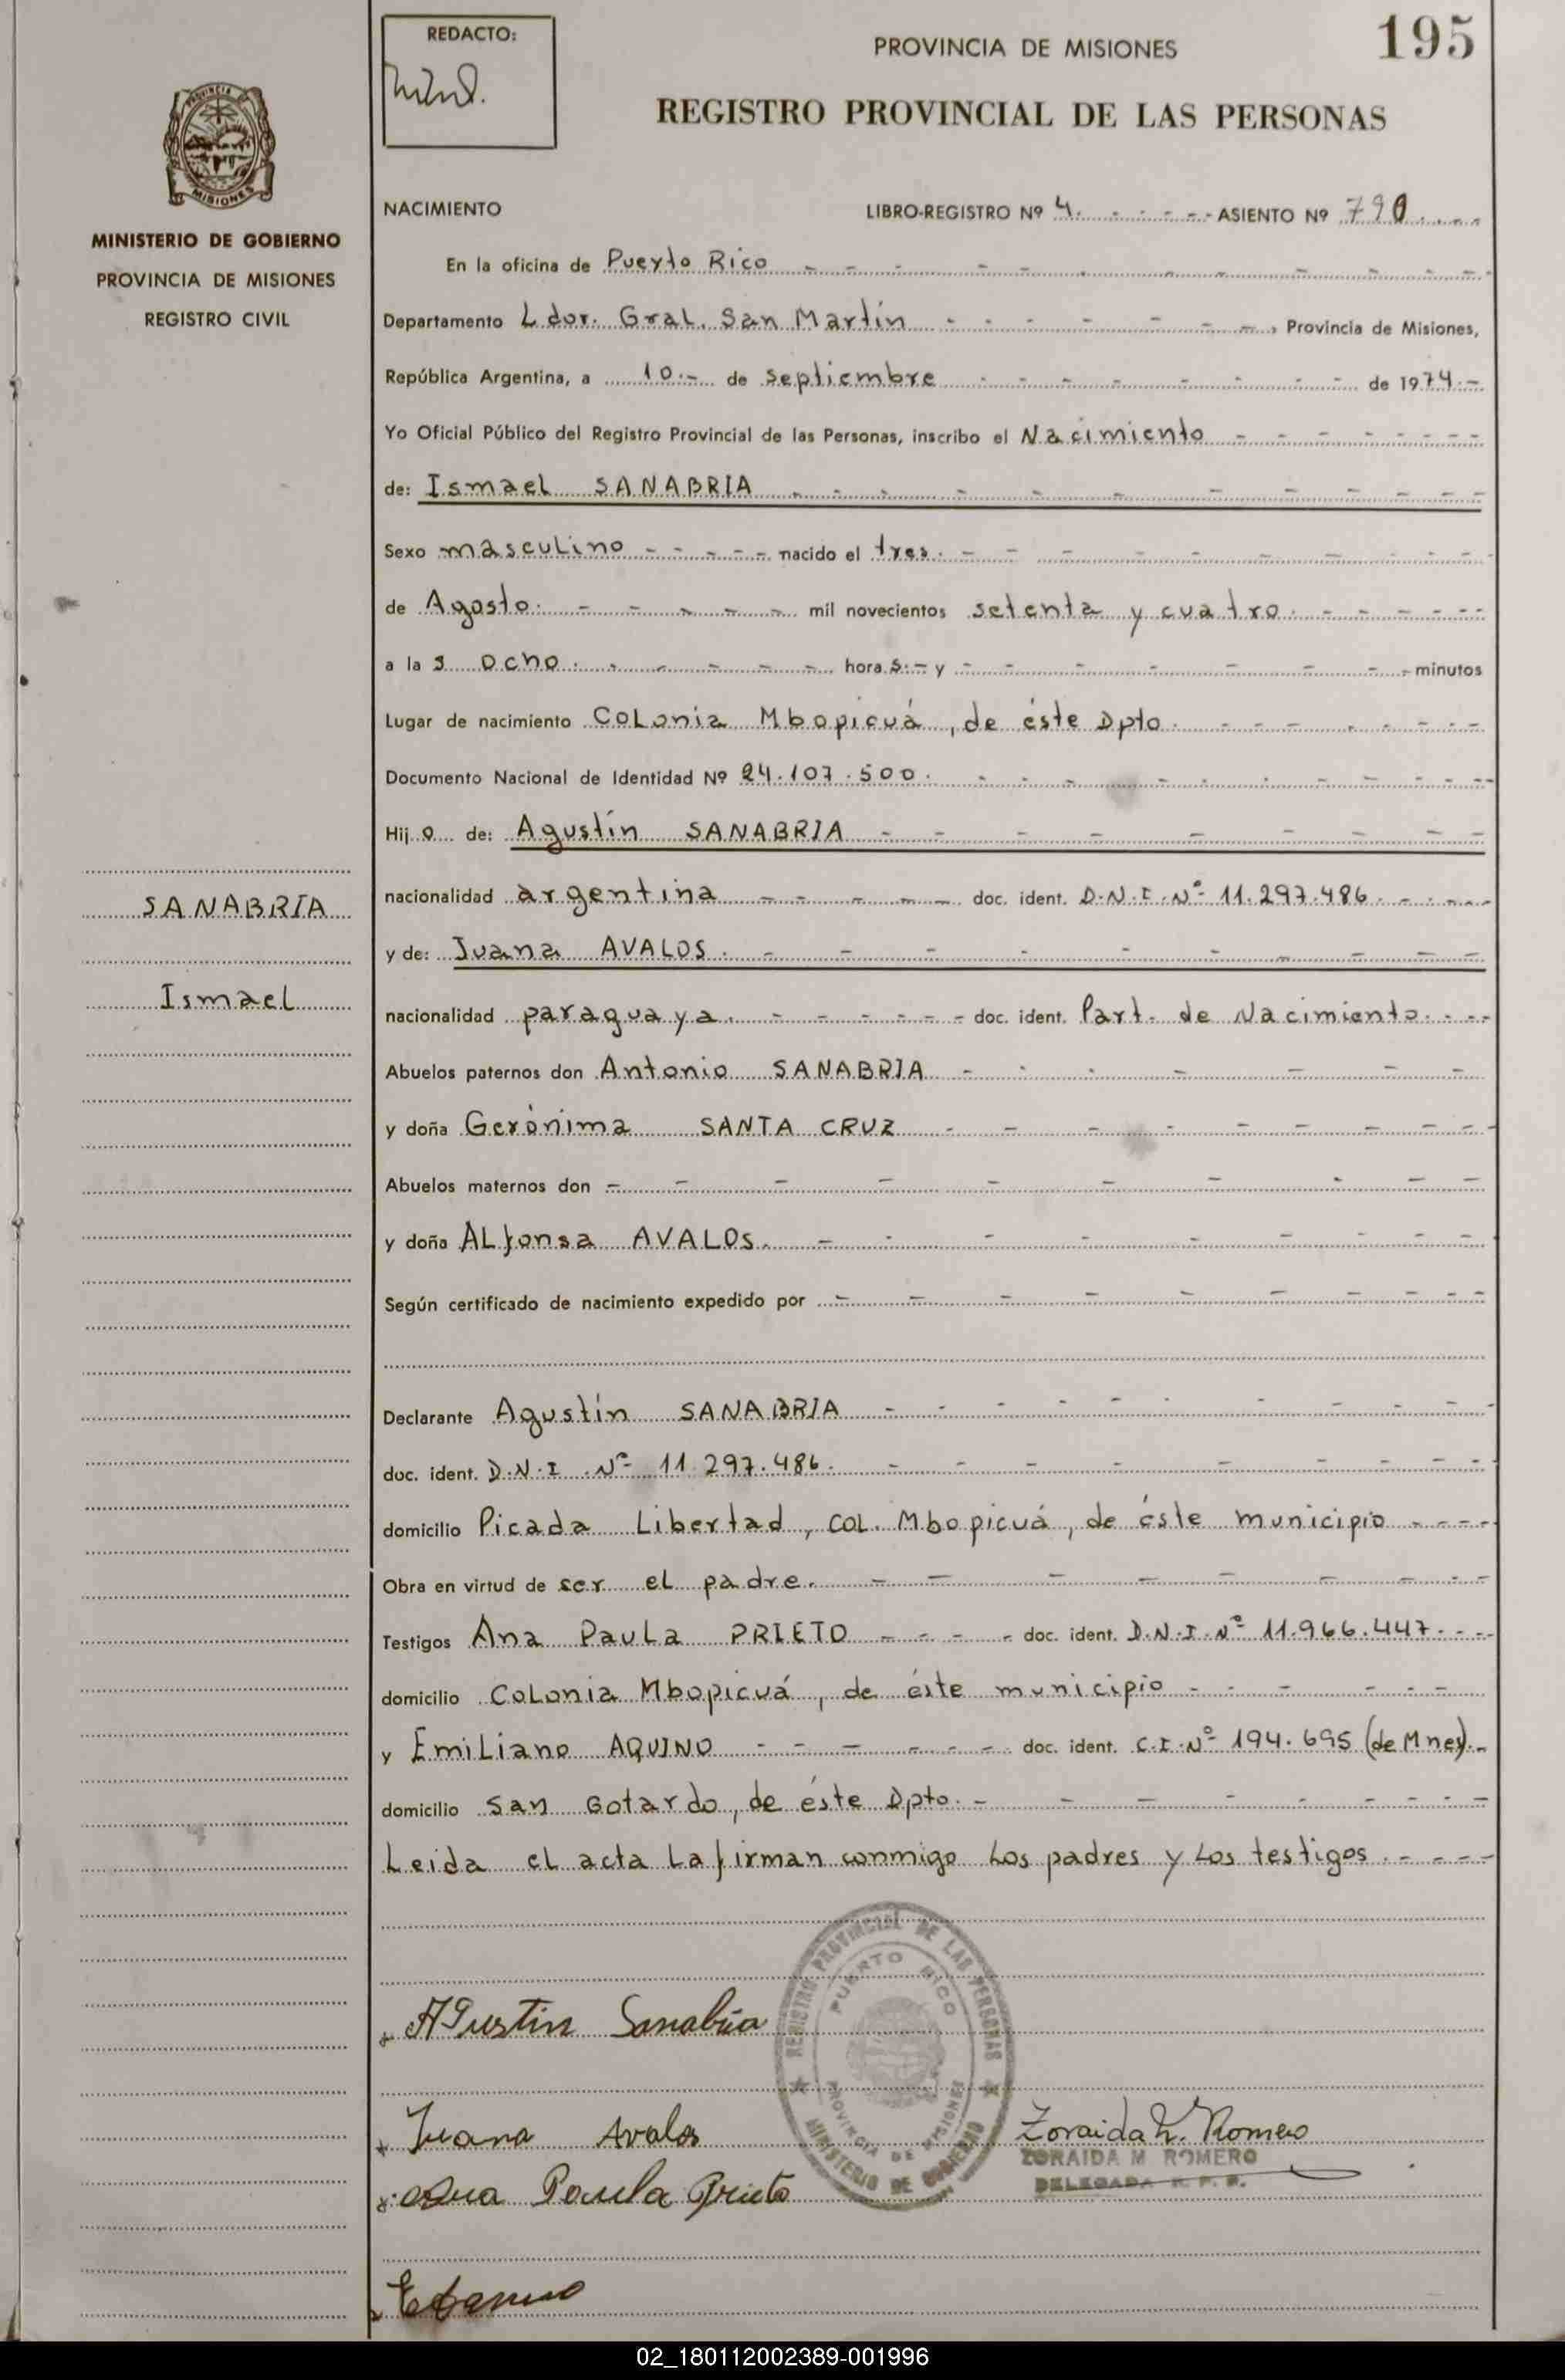 REDACTO:
PROVINCIA DE MISIONES
195
REGISTRO PROVINCIAL DE LAS PERSONAS
PROVINCIA
MISIONES
MINISTERIO DE GOBIERNO
PROVINCIA DE MISIONES
REGISTRO CIVIL
NACIMIENTO LIBRO-REGISTRO Nº 4. - - - - - ASIENTO Nº 790
En la oficina de Puerto Rico
Departamento Ldor. Gral. San Martín - - - , Provincia de Misiones,
República Argentina, a 10.- de septiembre - - - de 1974.-
Yo Oficial Público del Registro Provincial de las Personas, inscribo el Nacimiento
de: Ismael SANABRIA
Sexo masculino - - - nacido el tres.
de Agosto. - - - mil novecientos setenta y cuatro.
a las ocho. - - - horas.- y - - - minutos
Lugar de nacimiento Colonia Mbopicuá, de éste Dpto.
Documento Nacional de Identidad Nº 24.107.500.
Hijo de: Agustín SANABRIA
SANABRIA
nacionalidad argentina - - - doc. ident. D.N.I. Nº 11.297.486.
y de: Juana AVALOS.
Ismael
nacionalidad paraguaya. - - - doc. ident. Part. de Nacimiento.
Abuelos paternos don Antonio SANABRIA
y doña Gerónima SANTA CRUZ
Abuelos maternos don - - -
y doña Alfonsa AVALOS.
Según certificado de nacimiento expedido por - - -
Declarante Agustín SANABRIA
doc. ident. D.N.I Nº 11.297.486.
domicilio Picada Libertad, Col. Mbopicuá, de éste municipio
Obra en virtud de ser el padre.
Testigos Ana Paula PRIETO - - - doc. ident. D.N.I. Nº 11.966.447.
domicilio Colonia Mbopicuá, de éste municipio
y Emiliano AQUINO - - - doc. ident. C.I. Nº 194.695 (de Mnes).-
domicilio San Gotardo, de éste Dpto.-
Leida el acta la firman conmigo los padres y los testigos.
REGISTRO PROVINCIAL DE LAS PERSONAS
PUERTO RICO
PROVINCIA DE MISIONES
MINISTERIO DE GOBIERNO
Agustin Sanabria
Juana Avalos
Zoraida M. Romero
ZORAIDA M ROMERO
DELEGADA R. P. P.
Ana Paula Prieto
02_180112002389-001996